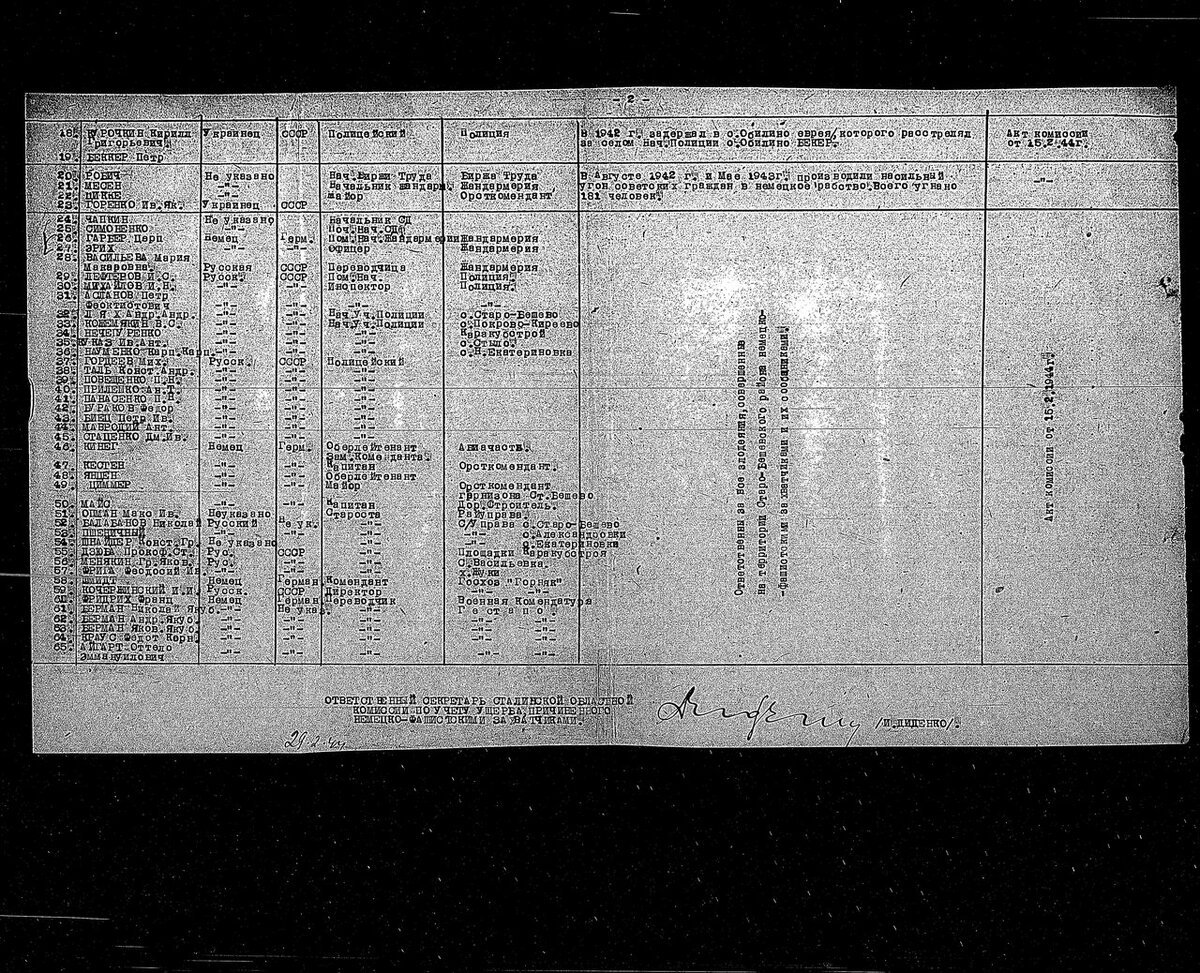 - 2 -
18. КУРОЧКИН Кирилл Украинец СССР Полицейский Полиция В 1942 г. задержал в с.Обилино еврея, которого расстрелял Акт комиссии
Григорьевич. за селом Нач.Полиции с.Обилино БЕКЕР. от 15.2.44г.
19. БЕККЕР Петр
20. РОВИЧ Не указано Нач.Биржи Труда Биржа Труда В Августе 1942 г. и Мае 1943г. производили насильный -"-
21. МЕСЕН -"- Начальник жандарм. Жандармерия угон советских граждан в немецкое рабство. Всего угнано
22. ЦИККЕ -"- Майор Орсткомендант 181 человек.
23. ГОРЕНКО Ив.Як. Украинец СССР
24. ЧАПКИН Не указано Начальник СД
25. СИМОНЕНКО -"-
26. ГАРБЕР Немец Герм. Пом.Нач.Жандармерии Жандармерия
27. ЭРИХ -"- -"- Офицер Жандармерия
28. ВАСИЛЬЕВА Мария
Макаровна. Русская СССР Переводчица Жандармерия
29. ЛЕФТЕРОВ И.С. Русск. СССР Пом.Нач. Полиция.
30. МИХАЙЛОВ И.Н. -"- -"- Инспектор Полиция.
31. АСЛАНОВ Петр
Феоктистович -"- -"- -"- -"-
32. Л Я Х Андр.Андр. -"- -"- Нач.Уч.Полиции с.Старо-Бешево
33. КОЖЕМЯКИН В.С. -"- -"- Нач.Уч.Полиции с.Покрово-Киреево
34. НЕЧЕГУРЕНКО -"- -"- -"- Каракубстрой
35. КУКАЗ Ив.Ант. -"- -"- -"- с.Стыло.
36. НАУМЕНКО Карп.Карп. -"- -"- -"- с.Н.Екатериновка
37. ГОРДЕЕВ Мих. Русск. СССР Полицейский
38. ТАЛЬ Конст.Андр. -"- -"- -"-
39. ПОВЕЩЕНКО П.Н. -"- -"- -"-
40. ПРИЛЕПКО Ан.Т. -"- -"- -"-
41. ПАНАСЕНКО П.Н. -"- -"- -"-
42. БУРАКОВ Федор -"- -"- -"-
43. БИЕЦ Петр Ив. -"- -"- -"-
44. МАВРОДИЙ Ант. -"- -"- -"-
45. СТАЦЕНКО Дм.Ив. -"- -"- -"-
46. КИНЕГ Немец Герм. Оберлейтенант Авиачасть.
Зам.Коменданта.
47. КЕСТЕН -"- -"- Капитан Орсткомендант.
48. ЯНЦЕН -"- -"- Оберлейтенант
49. ЦИММЕР -"- -"- Майор Орсткомендант
гарнизона Ст.Бешево
50. МАЙС -"- -"- Капитан Дор.Строитель.
51. ОПМАН Макс Ив. Неуказано Староста Райуправа.
52. БАЛАБАНОВ Николай Русский Не ук. -"- С/управа с.Старо-Бешево
53. ПШЕНИЧНЫЙ -"- -"- -"- с.Александровки
54. ШНАЙДЕР Конст.Гр. Не указано -"- -"- с.Екатериновки
55. ДЗЮБА Прокоф.Ст. Рус. СССР -"- Площадки Каракубстроя
56. МЕНЯКИН Гр.Яков. Рус. -"- -"- С.Васильевка.
57. ФРИГА Феодосий Ив. -"- -"- -"- х.Жуки
58. ШМИДТ Немец Герман. Комендант Госхоз "Горняк"
59. КОЧЕРЖИНСКИЙ И.И. Русск. СССР Директор -"- -"-
60. ФРИДРИХ Франц Немец Герман. Переводчик Военная Комендатура
61. БЕРМАН Николай Якус. -"- Не указ. -"- Г е с т а п о.
62. БЕРМАН Андр.Якус. -"- -"- -"- -"- -"-
63. БЕРМАН Яков.Якус. -"- -"- -"- -"- -"-
64. КРАУС Федот Корн. -"- -"- -"- -"- -"-
65. АЙГАРТ Оттело -"- -"- -"- -"- -"-
Эммануилович
Ответственны за все злодеяния, совершенные
на территории Старо-Бешевского района немецко-
-фашистскими захватчиками и их сообщниками.
Акт комиссии от 15.2.1944г.
ОТВЕТСТВЕННЫЙ СЕКРЕТАРЬ СТАЛИНСКОЙ ОБЛАСТНОЙ
КОМИССИИ ПО УЧЕТУ УЩЕРБА, ПРИЧИНЕННОГО
НЕМЕЦКО-ФАШИСТСКИМИ ЗАХВАТЧИКАМИ. /И.ДИДЕНКО/.
29.2.44